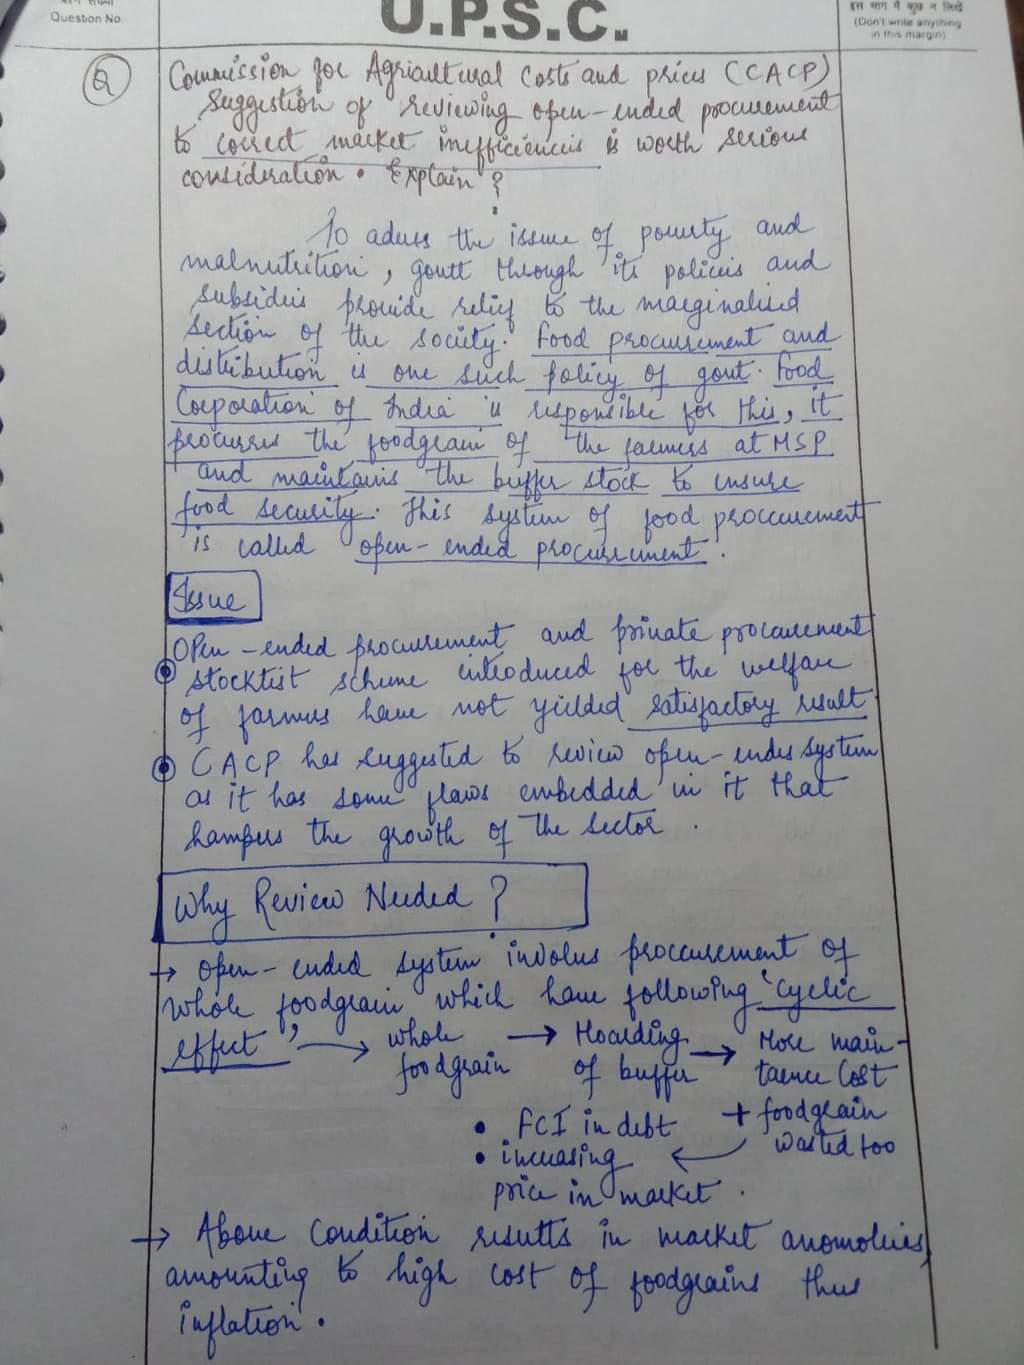 प्रश्न संख्या
Question No.
U.P.S.C.
इस भाग में कुछ न लिखें
(Don't write anything
in this margin)
Q
Commission for Agricultural Costs and prices (CACP)
Suggestion of reviewing open-ended procurement
to correct market inefficiencies is worth serious
consideration. Explain?
To adress the issue of poverty and
malnutrition, govtt through its policies and
subsidies provide relief to the marginalised
section of the society. Food procurement and
distribution is one such policy of govt. Food
Corporation of India is responsible for this, it
procures the foodgrain of the farmers at MSP
and maintains the buffer stock to ensure
food security. This system of food proccurement
is called open-ended procurement.
Issue
Open-ended procurement and private procurement
stocktist scheme introduced for the welfare
of farmers have not yielded satisfactory result.
CACP has suggested to review open-ended system
as it has some flaws embedded in it that
hampers the growth of the sector.
Why Review Needed?
→ Open-ended system involves proccurement of
whole foodgrain which have following 'cyclic
effect' → whole foodgrain → Hoarding of buffer → More maintaence Cost
+ foodgrain wasted too
• FCI in debt
• increasing
price in market.
→ Above Condition resultts in market anomolies,
amounting to high cost of foodgrains thus
inflation.